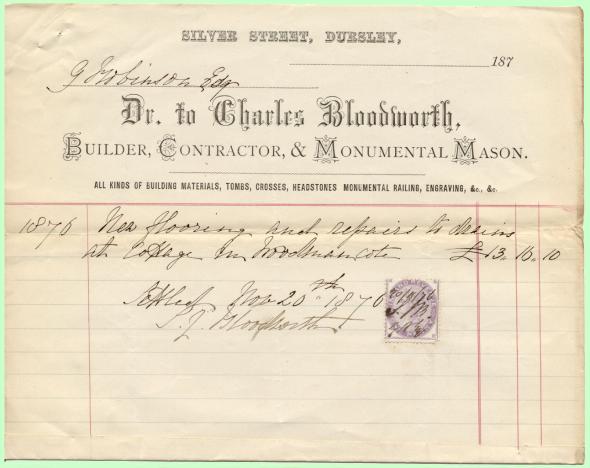 SILVER STREET, DURSLEY,
187
Robinson Esq
Dr. to Charles Bloodworth,
BUILDER, CONTRACTOR, & MONUMENTAL MASON.
ALL KINDS OF BUILDING MATERIALS, TOMBS, CROSSES, HEADSTONES MONUMENTAL RAILING, ENGRAVING, &c., &c.
1876 New flooring and repairs to drains
at Cottage in Woodmancote £13. 16. 10
Settled Nov 20th 1876
Bloodworth